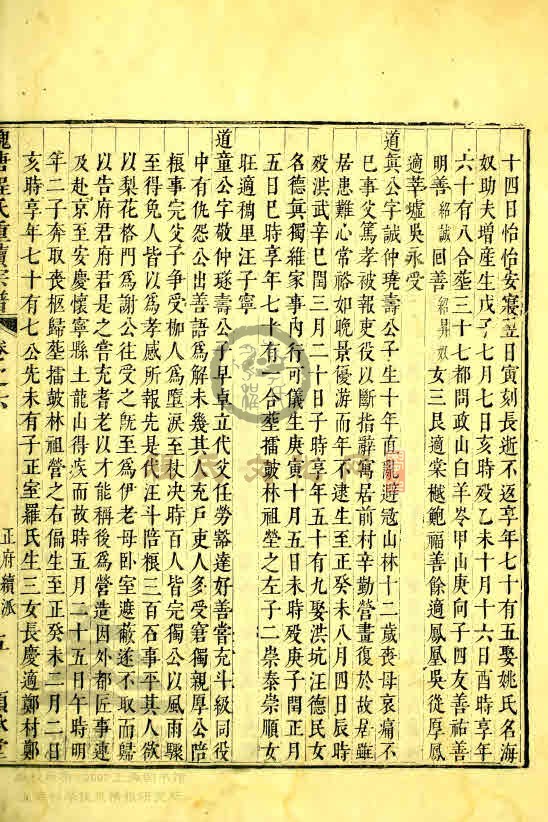 十四日怡怡安寢翌日寅刻長逝不返享年七十有五娶姚氏名海
奴助夫增産生戊子七月七日亥時殁乙未十月十六日酉時享年
六十有八合塟三十七都問政山白羊岺甲山庚向子四友善祐善
明善紹誠回善紹昇奴女三艮適棠樾鮑福善餘適鳳凰吳從厚鳳
適莘墟吳永受
道真公字誠仲琦壽公子生十年直亂避冦山林十二歲喪母哀痛不
已事父篤孝被報吏役以斷指辭寓居前村辛勤營畫復於故居雖
居患難心常裕如晚景優游而年不逮生至正癸未八月四日辰時
殁洪武辛巳閏三月二十日子時享年五十有九娶洪坑汪德民女
名德真獨維家事内行可儀生庚寅十月五日未時殁庚子閏正月
五日巳時享年七十有一合塟擂皷林祖塋之左子二崇秦崇順女
旺適稠里汪子寧
道童公字敬仲璲壽公子早卓立代父任勞豁達好善嘗充斗級同役
中有仇怨公出善語爲解未幾其人充戶吏人多受窘獨親厚公陪
粮事完父子争受柳人爲墮淚至杖决時百人皆完獨公以風雨驟
至得免人皆以爲孝感所報先是代汪斗陪粮三百石事平其人欲
以梨花格門爲謝公往受之旣至爲伊老母卧室遮蔽遂不取而歸
以告府君府君是之嘗充耆老以才能稱後爲營造因外都匠事連
及赴京至安慶懷寧縣土龍山得疾而故時五月二十五日午時明
年二子奔取喪柩歸塟擂皷林祖營之右偏生至正癸未二月二日
亥時享年七十有七公先未有子正室羅氏生三女長慶適鄭村鄭
槐塘程氏重續宗譜 卷之六 正府續派 五 順承堂